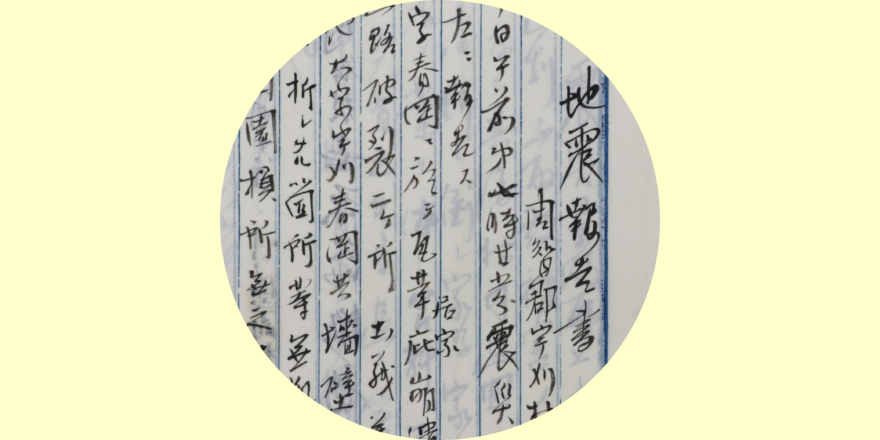 地震報告書
周智郡宇刈村
日午前才七時廿分震災
左ニ報告ス
字春岡ニ於テ瓦葺庇崩潰
居家
路破裂二ヶ所土蔵
大字宇刈春岡共墻壁
折レ箇所等無
園損所無之